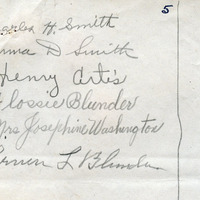 5
arles H. Smith
mma D Smith
Henry Artis
Flossie Blunder
Mrs Josephine Washington
L Blunder